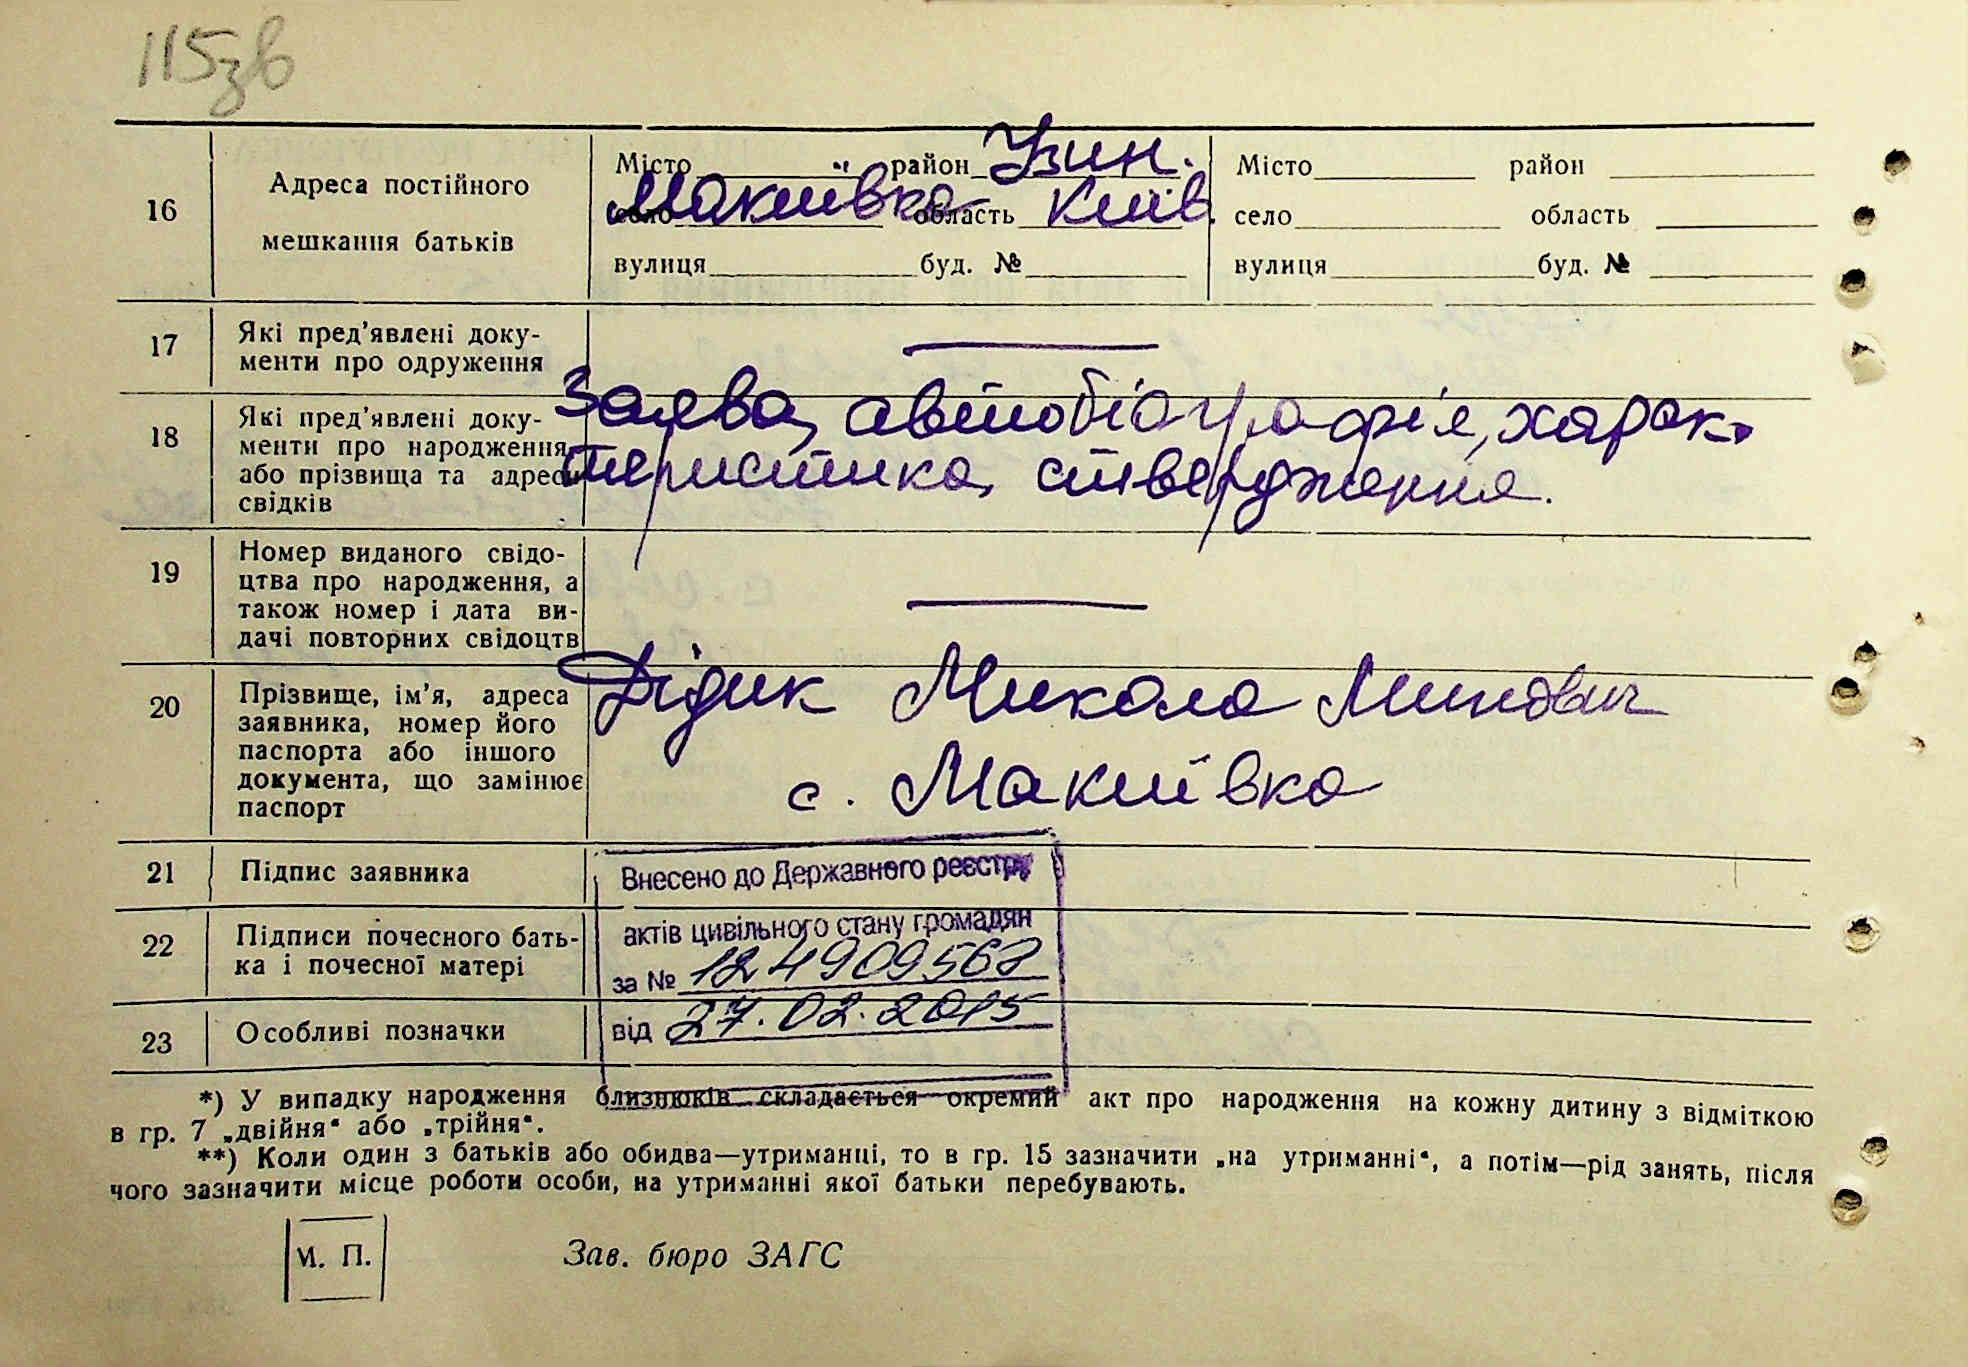 115зв
Місто район Узин. Місто район
село Макиївка область Київ. село область
вулиця буд. № вулиця буд. №
16 Адреса постійного
мешкання батьків
17 Які пред’явлені доку-
менти про одруження —
18 Які пред’явлені доку-
менти про народження
або прізвища та адреси
свідків
Заява, автобіографія, харак-
теристика, ствердження.
19 Номер виданого свідо-
цтва про народження, а
також номер і дата ви-
дачі повторних свідоцтв —
20 Прізвище, ім’я, адреса
заявника, номер його
паспорта або іншого
документа, що замінює
паспорт
Дідик Микола
с. Макиївка
21 Підпис заявника
22 Підписи почесного бать-
ка і почесної матері
23 Особливі позначки
Внесено до Державного реєстру
актів цивільного стану громадян
за №
від 27.02.2015
*) У випадку народження близнюків складається окремий акт про народження на кожну дитину з відміткою
в гр. 7 „двійня“ або „трійня“.
**) Коли один з батьків або обидва—утриманці, то в гр. 15 зазначити „на утриманні“, а потім—рід занять, після
чого зазначити місце роботи особи, на утриманні якої батьки перебувають.
М. П. Зав. бюро ЗАГС